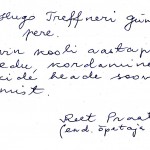 Hugo Treffneri gün
pere.
kooli aastap
edu, kordamine
heade soov
mist.
Reet Praat
(end. õpetaja